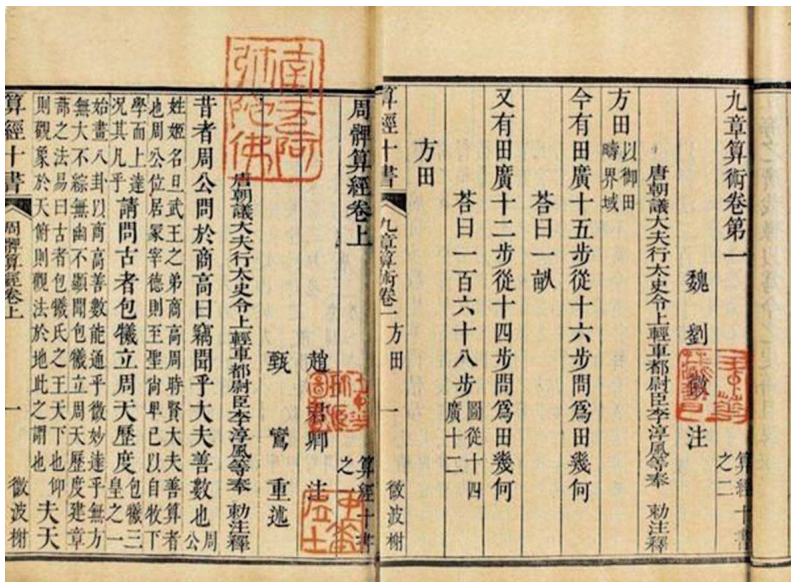 九章算術卷第一
算經十書
之二
魏 劉徽 注
唐朝議大夫行太史令上輕車都尉臣李淳風等奉 勅注釋
方田以御田疇界域
今有田廣十五步從十六步問爲田幾何
荅曰一畝
又有田廣十二步從十四步問爲田幾何
荅曰一百六十八步圖從十四廣十二
方田
算經十書 九章算術卷一 方田 一 微波榭
周髀算經卷上
算經十書
之
趙君卿 注
甄鸞 重述
唐朝議大夫行太史令上輕車都尉臣李淳風等奉 勅注釋
昔者周公問於商高曰竊聞乎大夫善數也周公
姓姬名旦武王之弟商高周時賢大夫善算者
也周公位居冢宰德則至聖尚卑己以自牧下
學而上達況其凡乎請問古者包犧立周天歷度包犧三皇之一
始畫八卦以商高善數能通乎微妙達乎無方
無大不綜無幽不顯聞包犧立周天歷度建章
蔀之法易曰古者包犧氏之王天下也仰
則觀象於天俯則觀法於地此之謂也夫天
算經十書 周髀算經卷上 一 微波榭
南无阿
弥陀佛